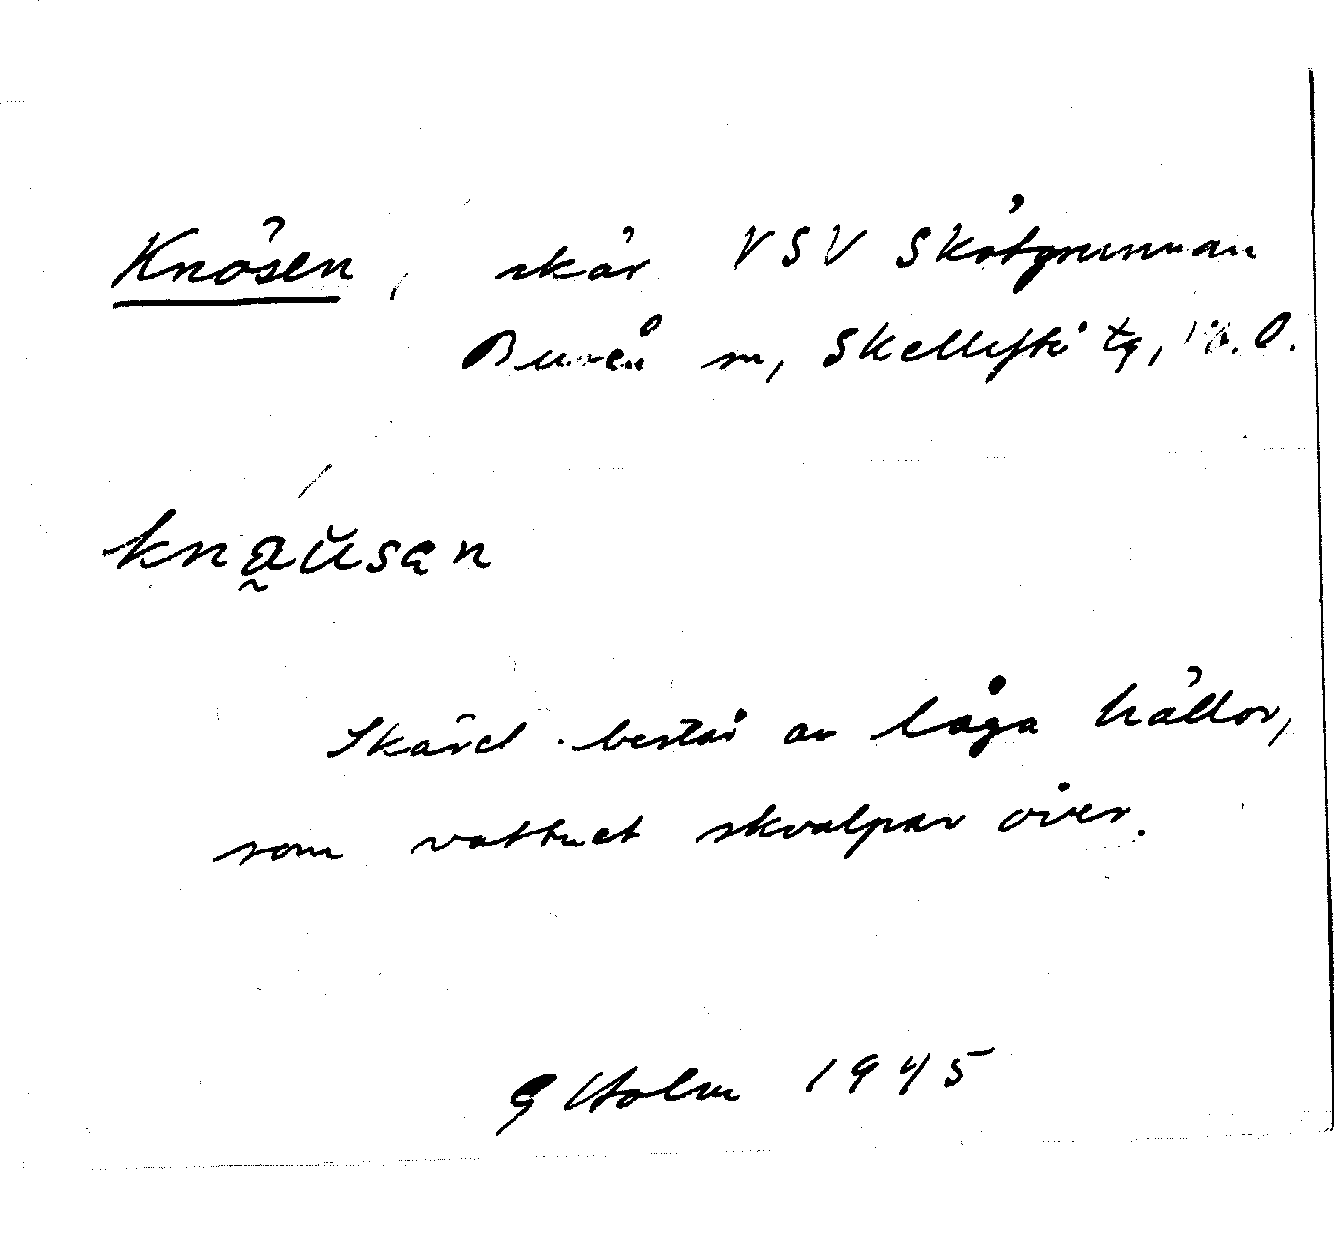 Knösen, skär VSV Skötgrunnan
Bureå sn, Skellefteå tg, Vb.
knau̯sən
Skäret består av låga hällor,
som vattnet skvalpar över.
G Holm 1945